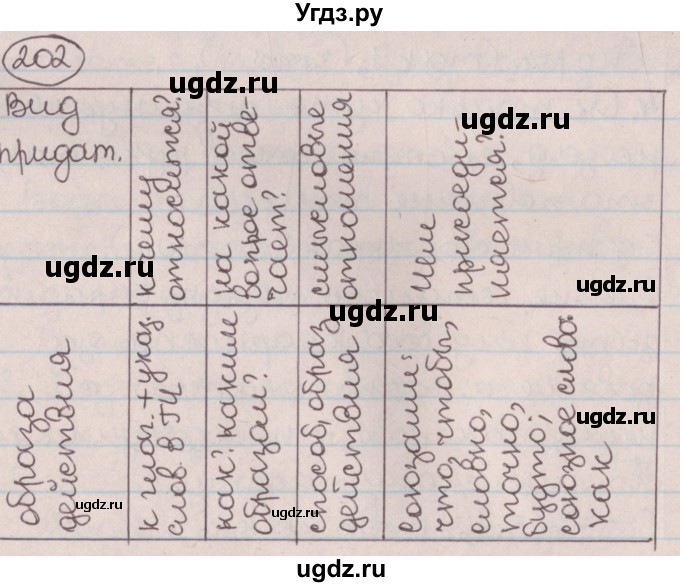 Угдз.ру
202
Вид
придат.
к чему
относится?
на какой
вопрос отве-
чает?
смысловые
отношения
Чем
присоеди-
няется?
образа
действия
к глаг. + указ.
слов. в ГЧ
как? каким
образом?
способ, образ
действия
союзами:
что, чтобы,
словно,
точно,
будто;
союзное слово:
как
ugdz.ru
ugdz.ru
ugdz.ru
ugdz.ru
ugdz.ru
ugdz.ru
ugdz.ru
ugdz.ru
ugdz.ru
ugdz.ru